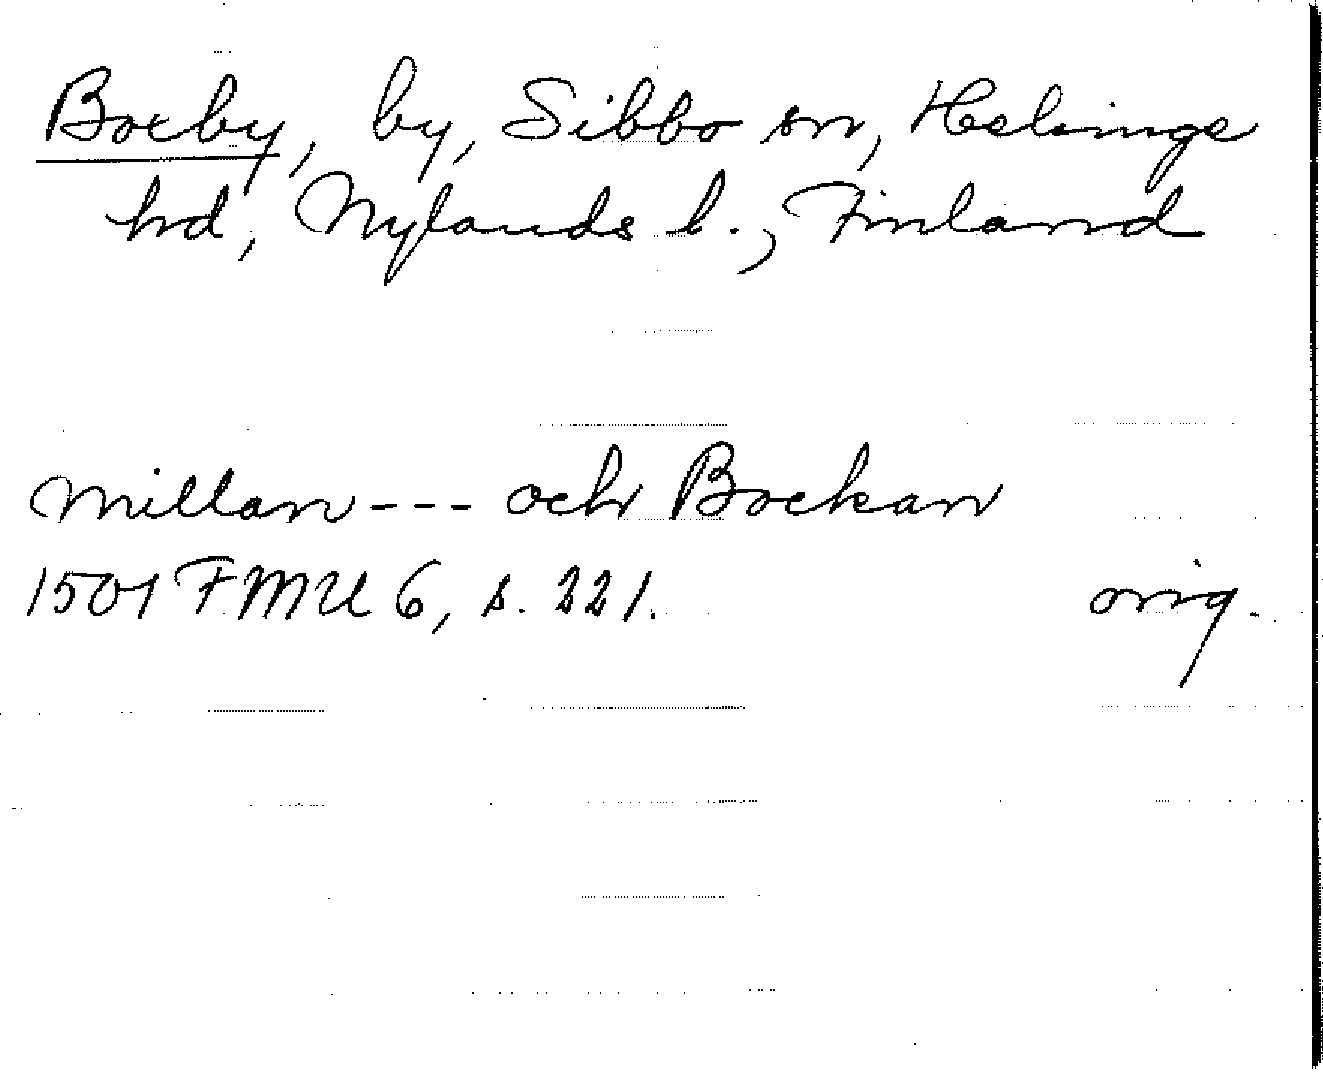 Boxby, by, Sibbo sn, Helsinge
hd, Nylands l., Finland
millan --- och Bockan
1507 FMU 6, s. 221. orig.